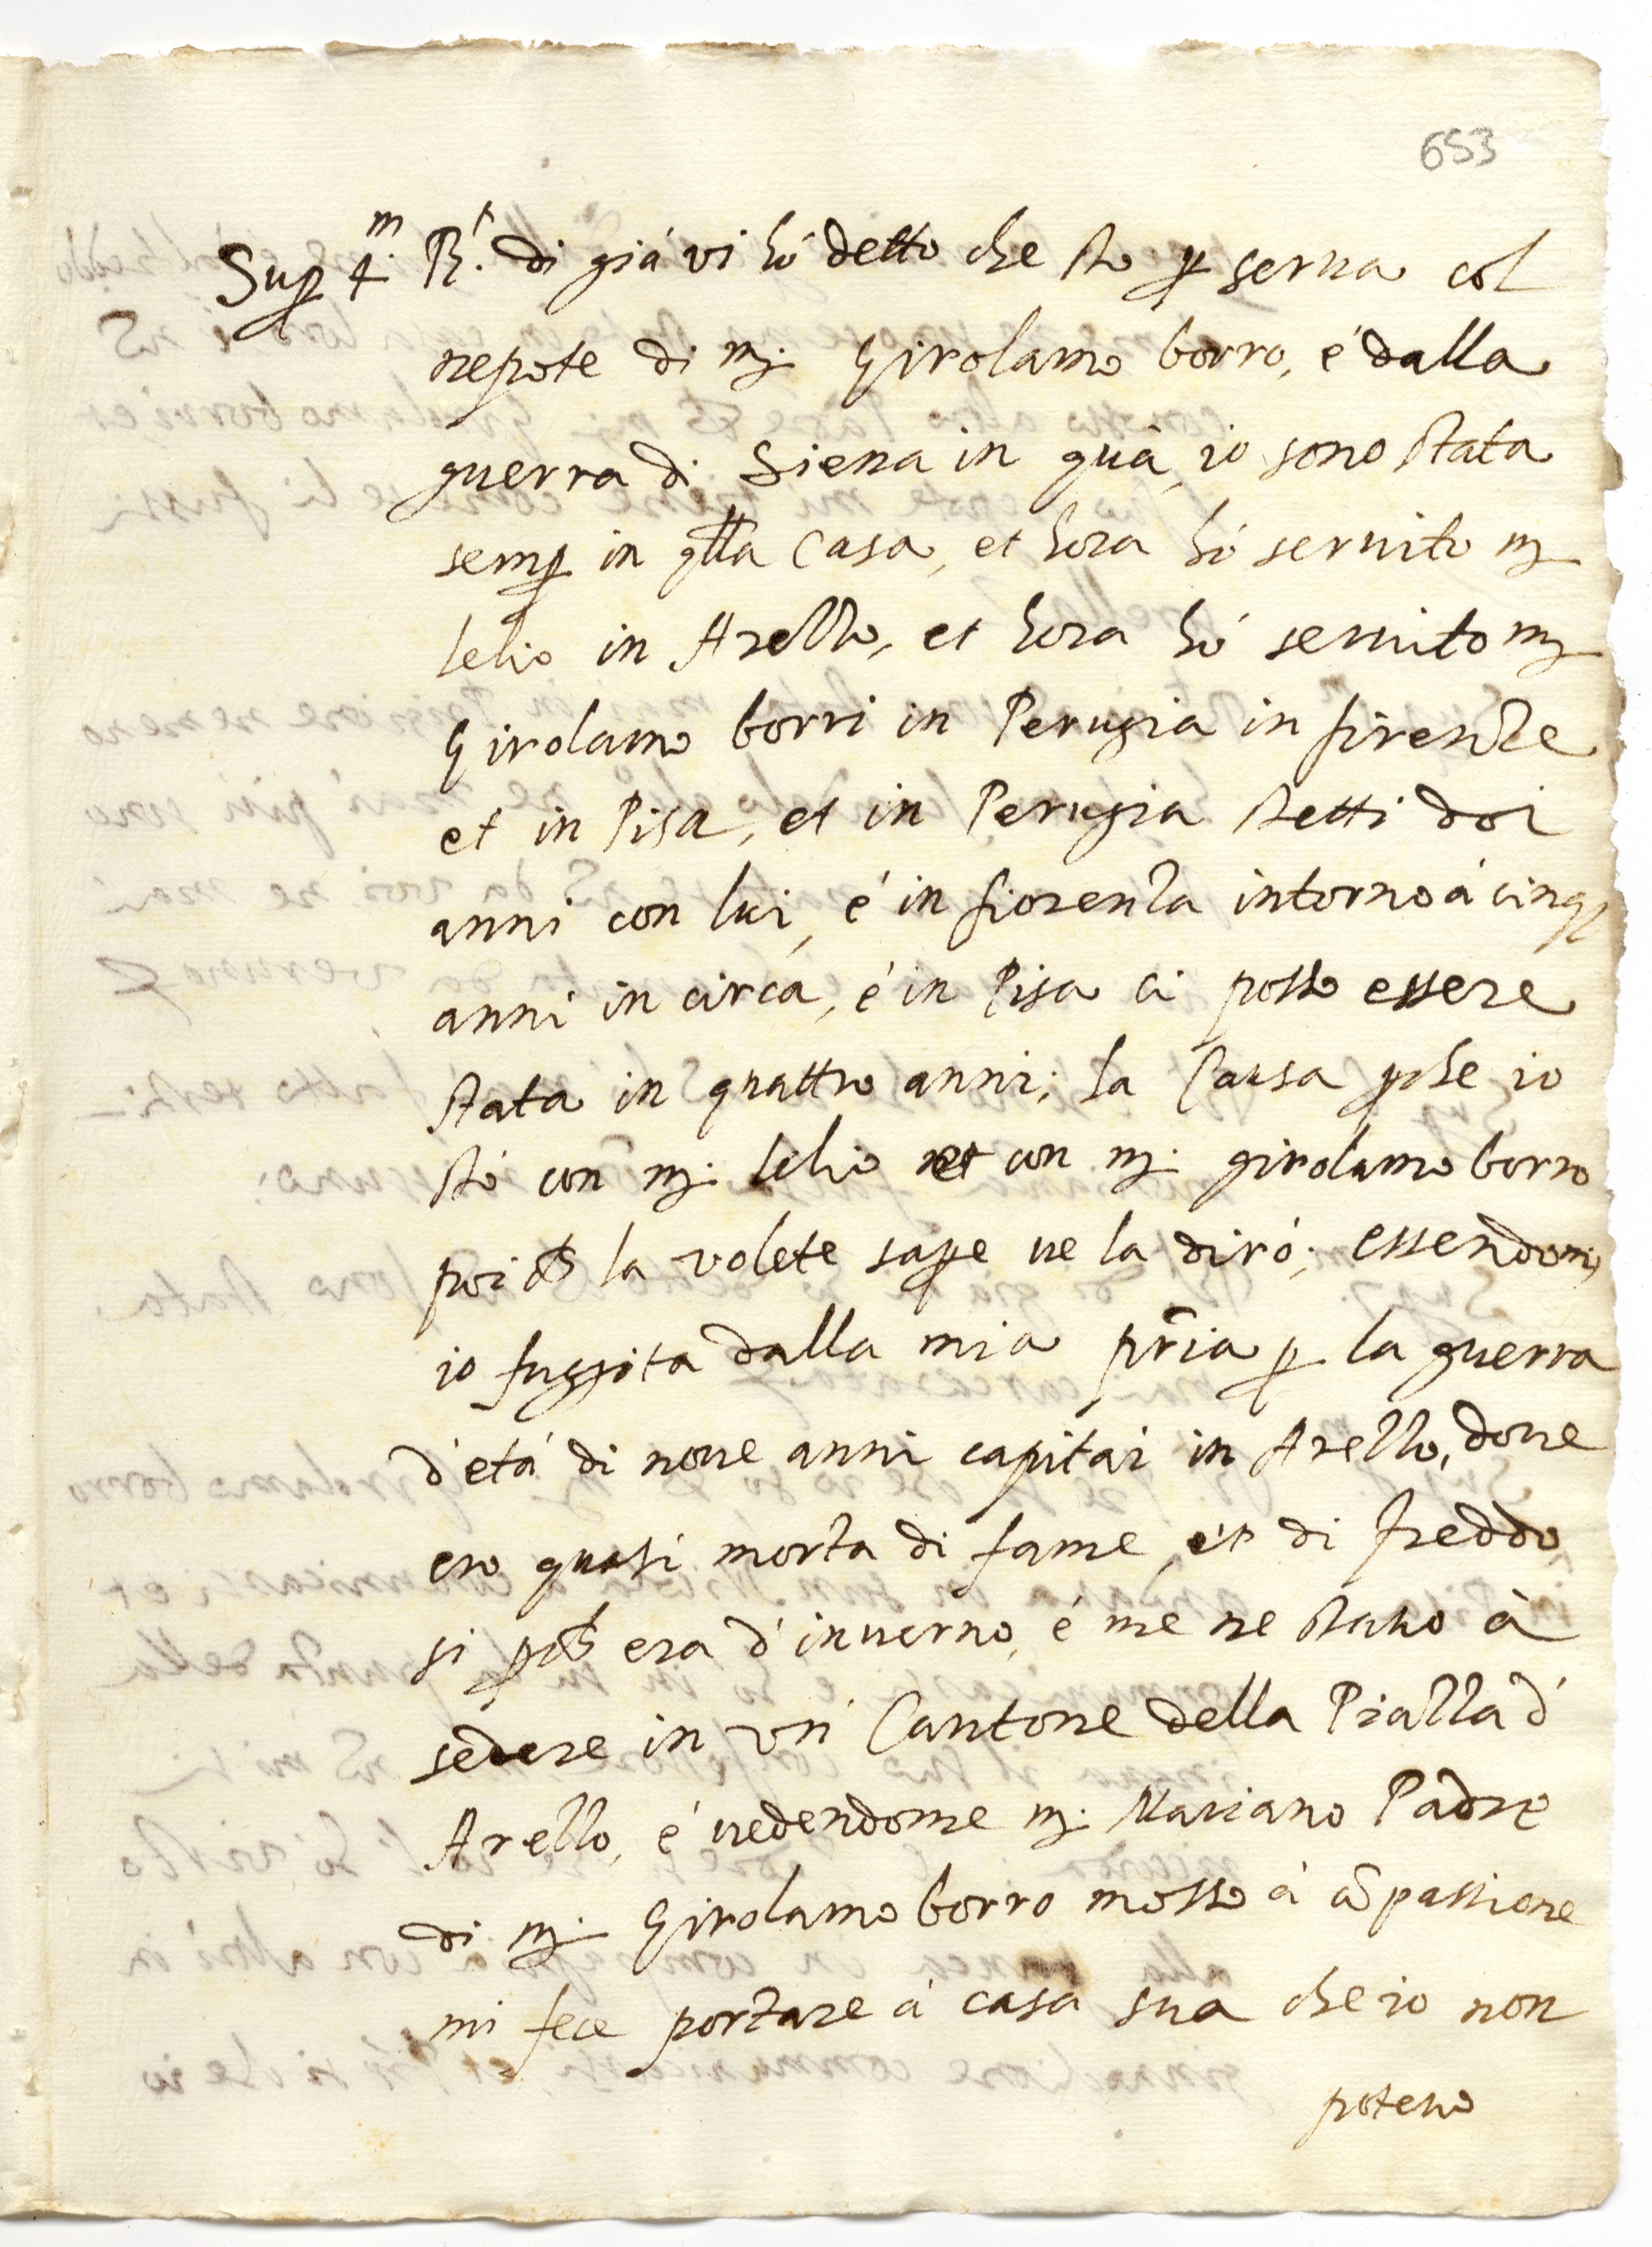 653
Sup 4.m R.t di già vi hó detto che sto p serua col
nepote di m. Girolamo borro, é dalla
guerra di Siena in quà, io sono stata
semp in qlla Casa, et hora hó seruito m
lelio in Arezzo, et hora hó seruito m
Girolamo borri in Perugia in firenze
et in Pisa, et in Perugia stetti doi
anni con lui, é in fiorenza intorno á cinq
anni in circa, é in Pisa ci posso essere
stata in quattro anni; la Causa pche io
stó con m. lelio et con m. girolamo borro
poi ch la volete sape ue la diró; essendomi
io fuggita dalla mia pria p la guerra
d'etá di noue anni capitai in Arezzo, doue
ero quasi morta di fame, et di freddo
si pch era d'inuerno, é me ne stauo à
sedere in un Cantone della Piazza d'
Arezzo, é uedendome m. Mariano Padre
di m. Girolamo borro mosso á cōpassione
mi fece portare á casa sua che io non
poteuo